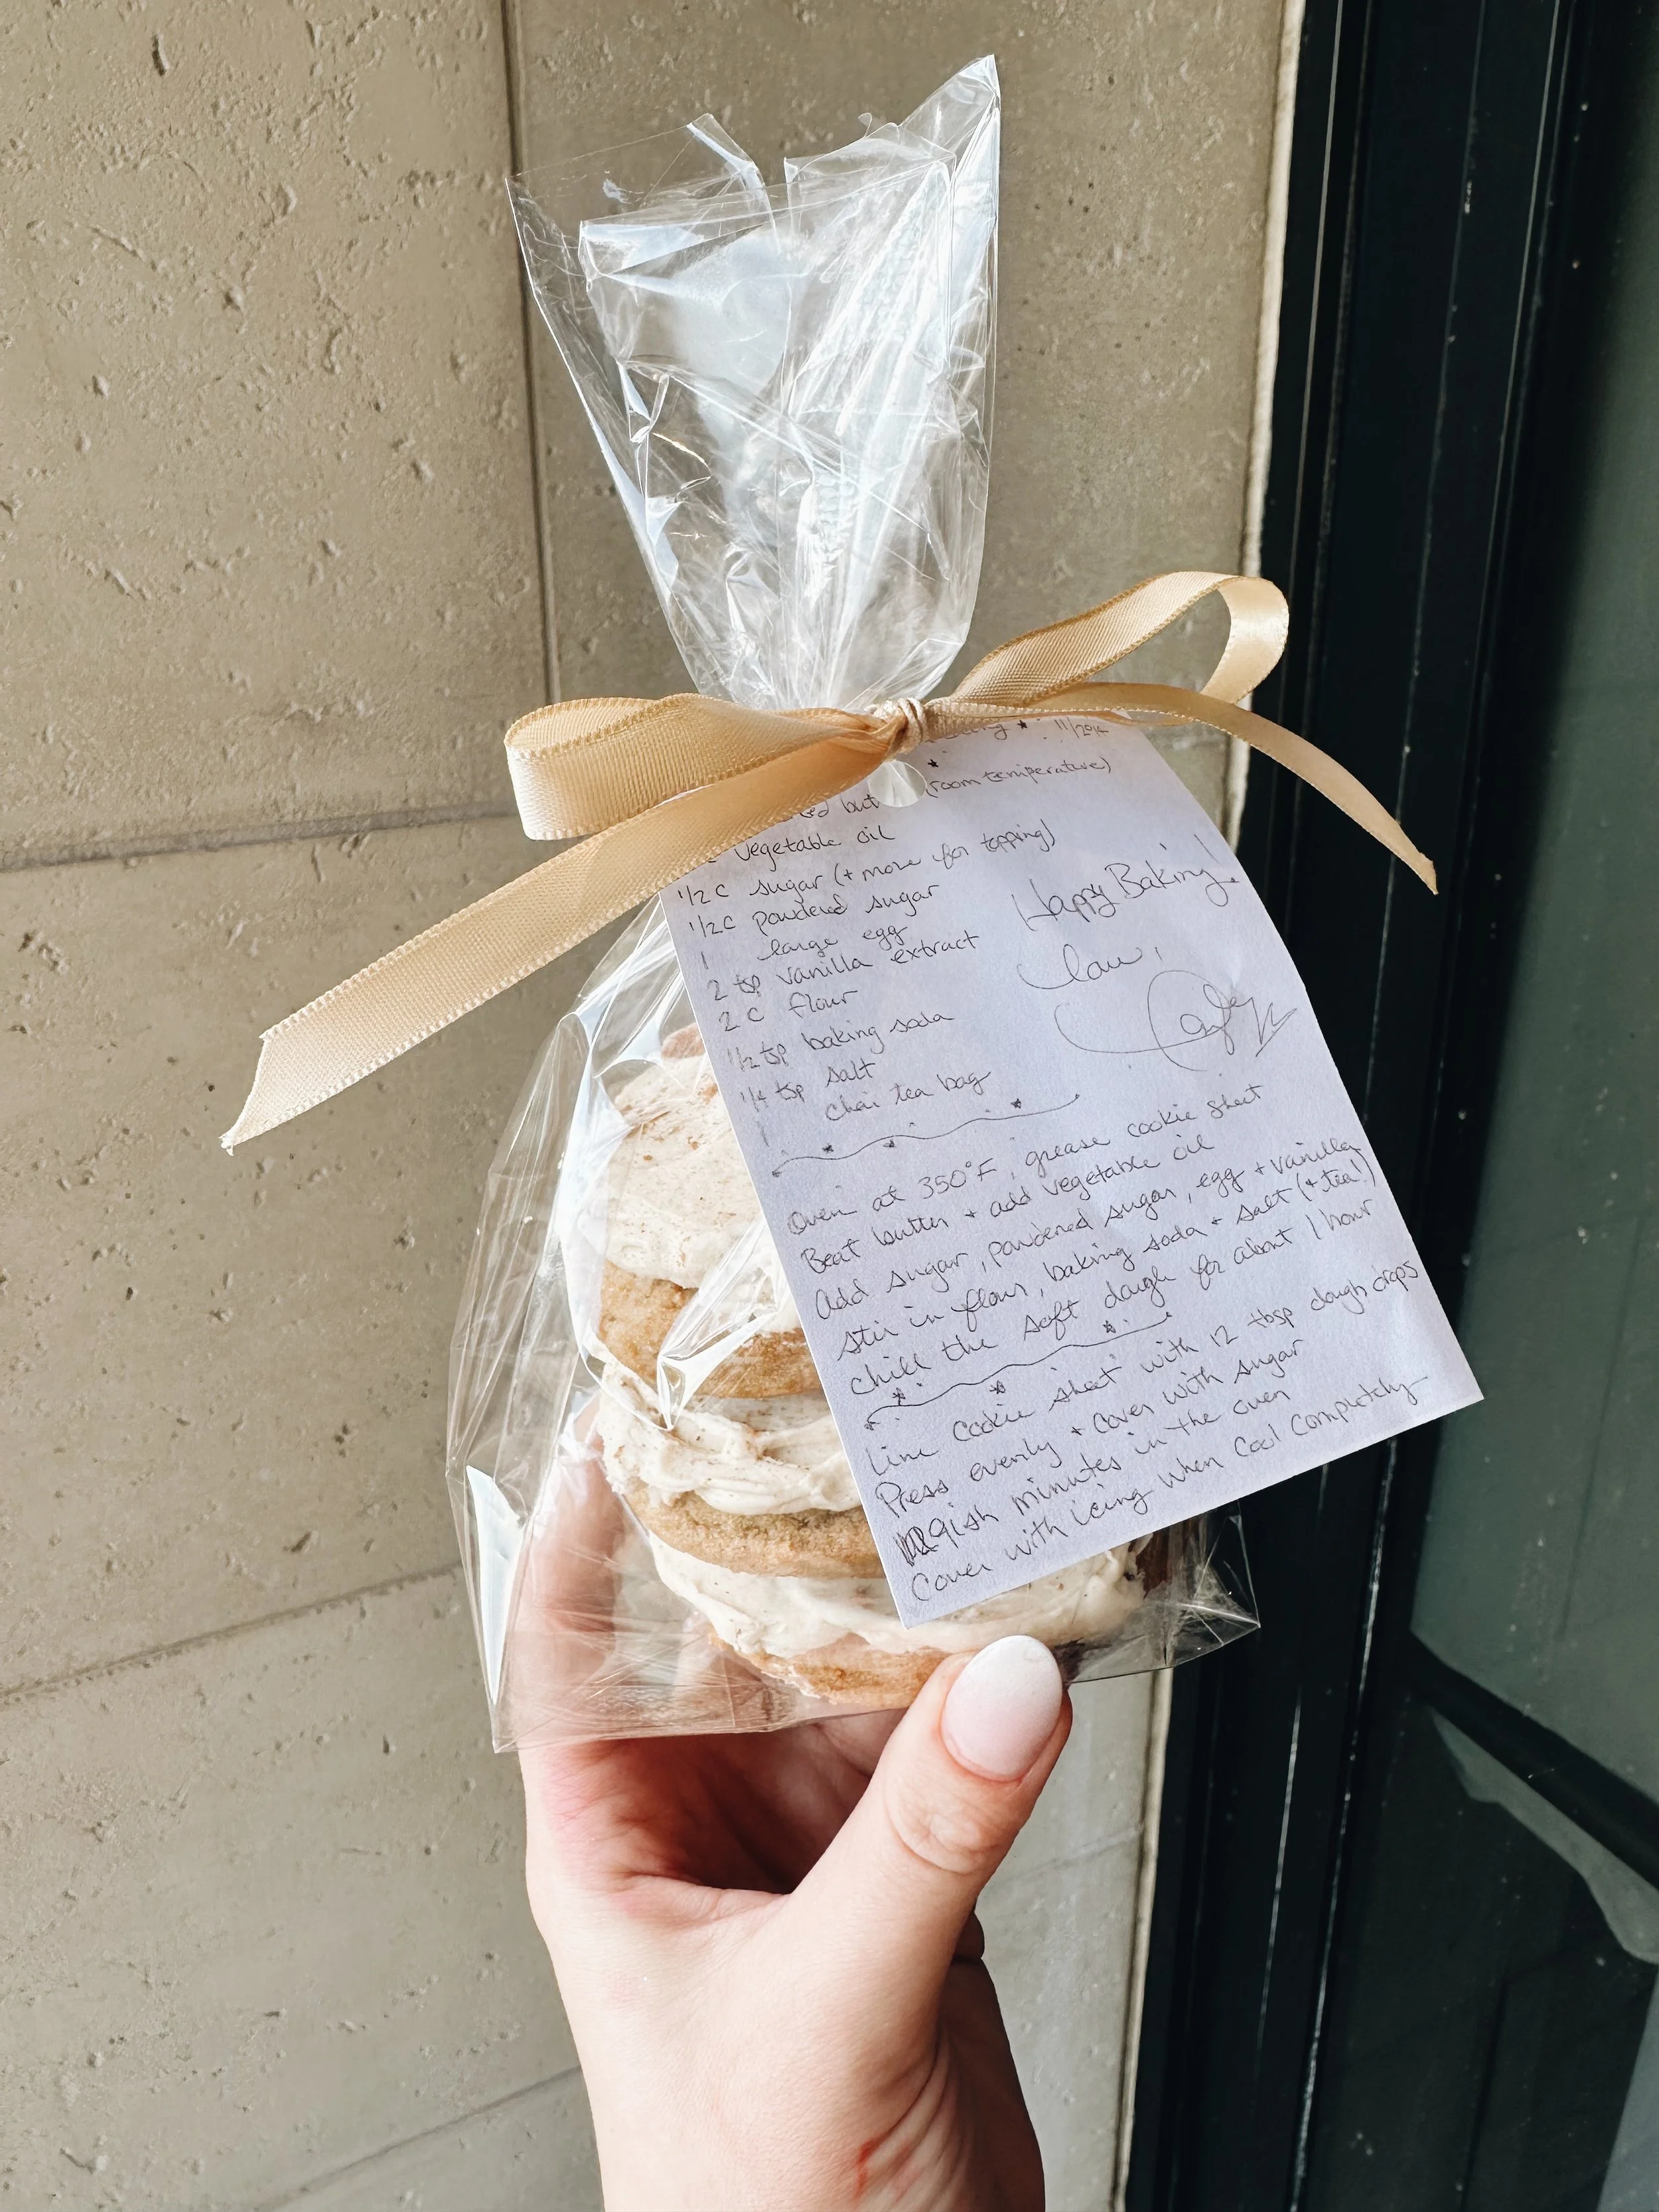 11/2014
(room temperature)
vegetable oil
1/2 c sugar (+ more for topping)
1/2 c powdered sugar
1 large egg
2 tsp vanilla extract
2 c flour
1/2 tsp baking soda
1/4 tsp salt
1 chai tea bag
Happy Baking!
Oven at 350°F, grease cookie sheet
Beat butter + add vegetable oil
Add sugar, powdered sugar, egg + vanilla
stir in flour, baking soda + salt (+ tea!)
chill the soft dough for about 1 hour
Line cookie sheet with 12 tbsp dough drops
Press evenly + cover with sugar
9ish minutes in the oven
Cover with icing when cool completely